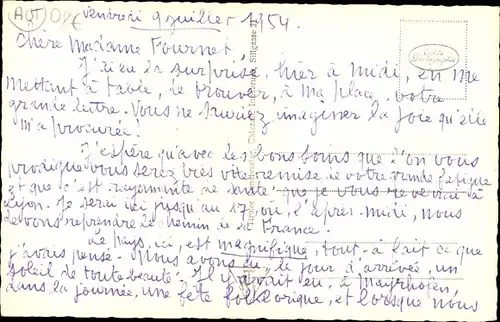 AUT
vendredi 9 juillet 1954.
Chère Madame Fournet,
J'ai eu la surprise, hier à midi, en me
mettant à table, de trouver, à ma place, votre
grande lettre. Vous ne sauriez imaginer la joie qu'elle
m'a procurée.
J'espère qu'avec les bons soins que l'on vous
prodigue vous serez très vite remise de votre grande fatigue
et que c'est rayonnante de santé que je vous reverrai à
Lyon. Je serai ici jusqu'au 17, où, l'après-midi, nous
devons reprendre le chemin de la France.
Le pays, ici, est magnifique, tout à fait ce que
j'avais pensé. Nous avons eu, le jour d'arrivée, un
soleil de toute beauté. Il y avait eu, à Mayrhofen,
dans la journée, une fête folklorique, et lorsque nous
Echte Photographie